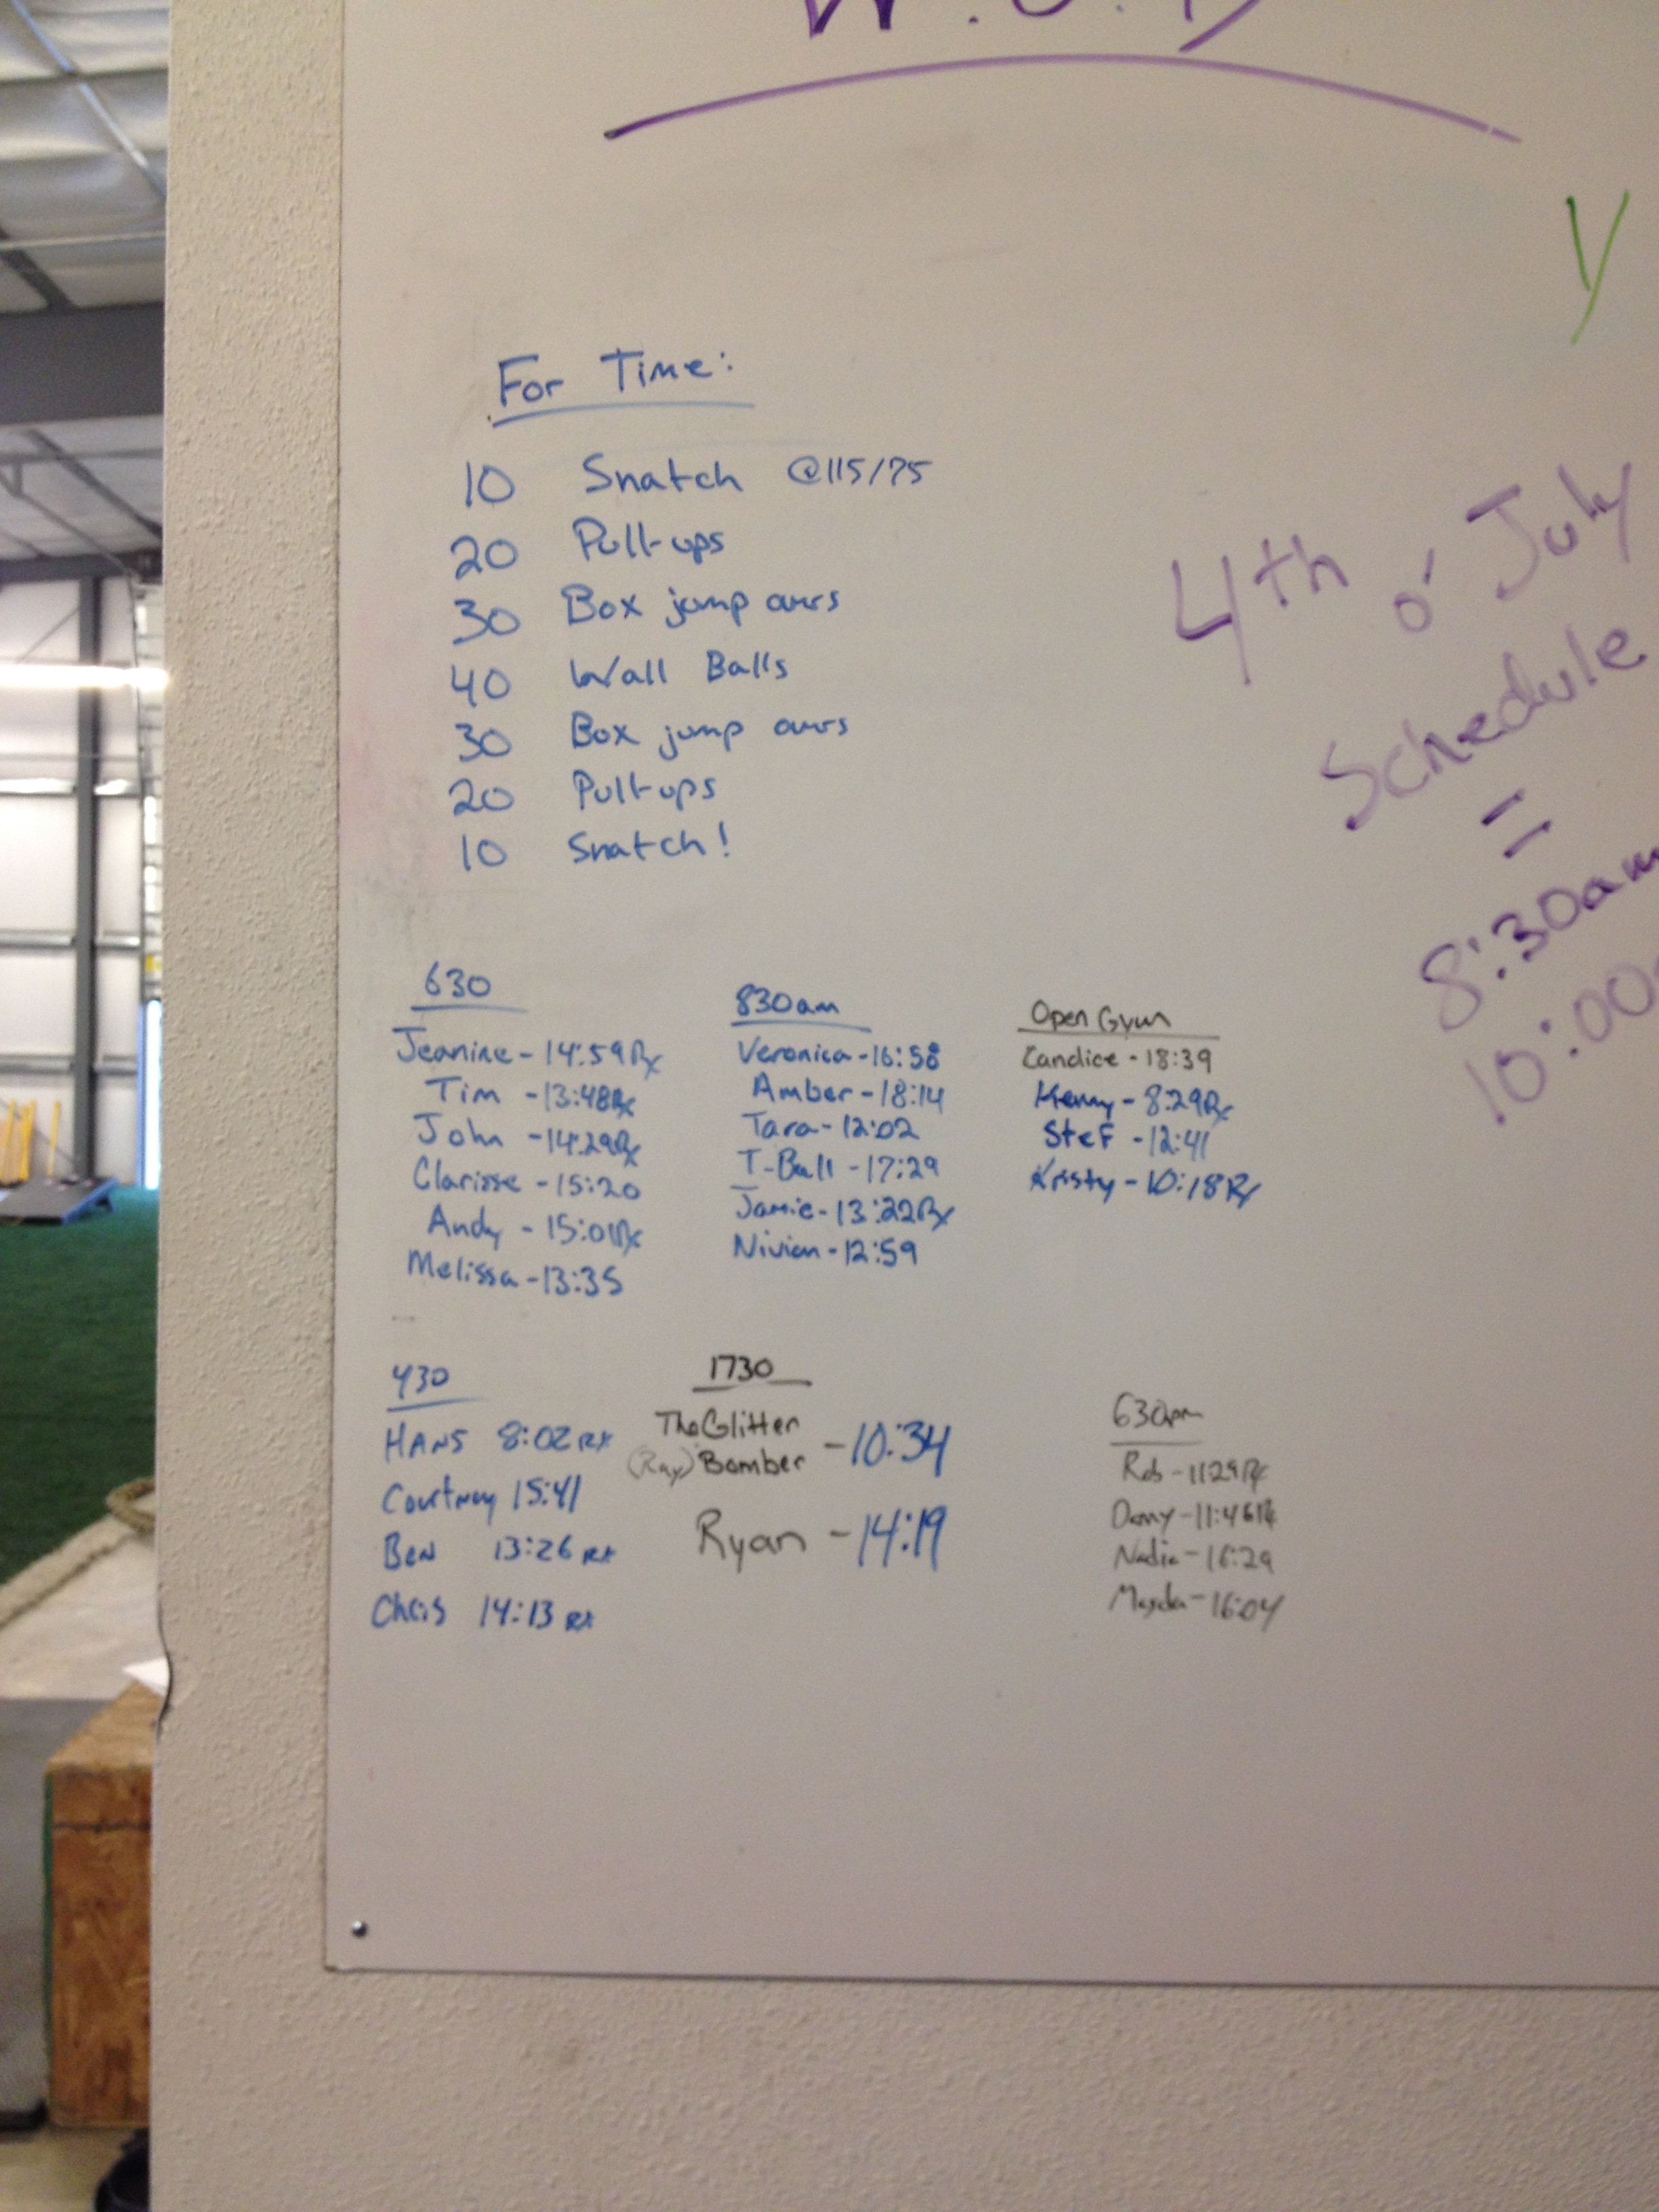 W.O.D
For Time:
10 Snatch @115/75
20 Pull-ups
30 Box jump overs
40 Wall Balls
30 Box jump overs
20 Pull-ups
10 Snatch!
4th o' July
Schedule
=
8:30am
10:00
630
Jeanine - 14:59 Rx
Tim - 13:48 Rx
John - 14:29 Rx
Clarisse - 15:20
Andy - 15:01 Rx
Melissa - 13:35
830am
Veronica - 16:58
Amber - 18:14
Tara - 12:02
T-Ball - 17:29
Jamie - 13:22 Rx
Nivian - 12:59
Open Gym
Candice - 18:39
Kenny - 8:29 Rx
Stef - 12:41
Kristy - 10:18 Rx
430
HANS 8:02 RX
Courtney 15:41
Ben 13:26 RX
Chris 14:13 RX
1730
The Glitter
(Ray) Bomber - 10:34
Ryan - 14:19
630pm
Rob - 1129 Rx
Danny - 11:46 Rx
Nadia - 16:29
- 16:04